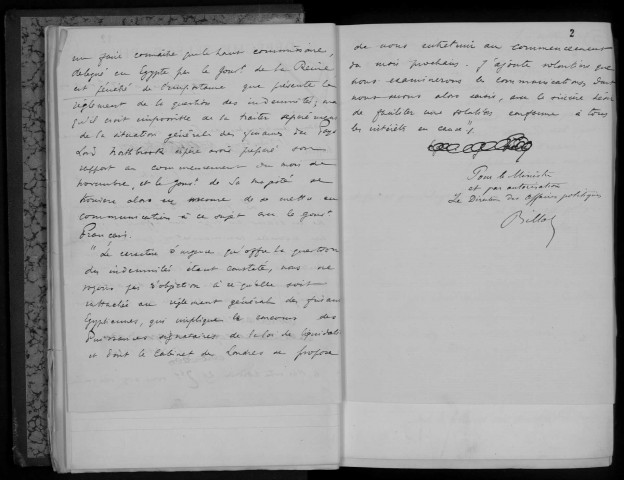 me faire connaître que le haut commissaire,
délégué en Egypte par le Gouvt de la Reine
est pénétré de l'importance que présente le
règlement de la question des indemnités; mais
qu'il croit impossible de la traiter séparément
de la situation générale des finances du Pays
Lord Northbrook espère avoir préparé son
rapport au commencement du mois de
novembre, et le Gouvt de Sa Majesté se
trouvera alors en mesure de se mettre en
communication à ce sujet avec le Gouvt
Français.
" Le caractère d'urgence qu'offre la question
des indemnités étant constaté, nous ne
voyons pas d'objection à ce qu'elle soit
rattachée au règlement général des finances
Egyptiennes, qui implique le concours des
Puissances signataires de la loi de liquidation
et dont le Cabinet de Londres se propose
2
de nous entretenir au commencement
du mois prochain. J'ajoute volontiers que
nous examinerons les communications, dont
nous serons alors saisis, avec le sincère désir
de faciliter une solution conforme à tous
les intérêts en cause"
Pour le Ministre
et par autorisation
Le Directeur des affaires politiques
Billot